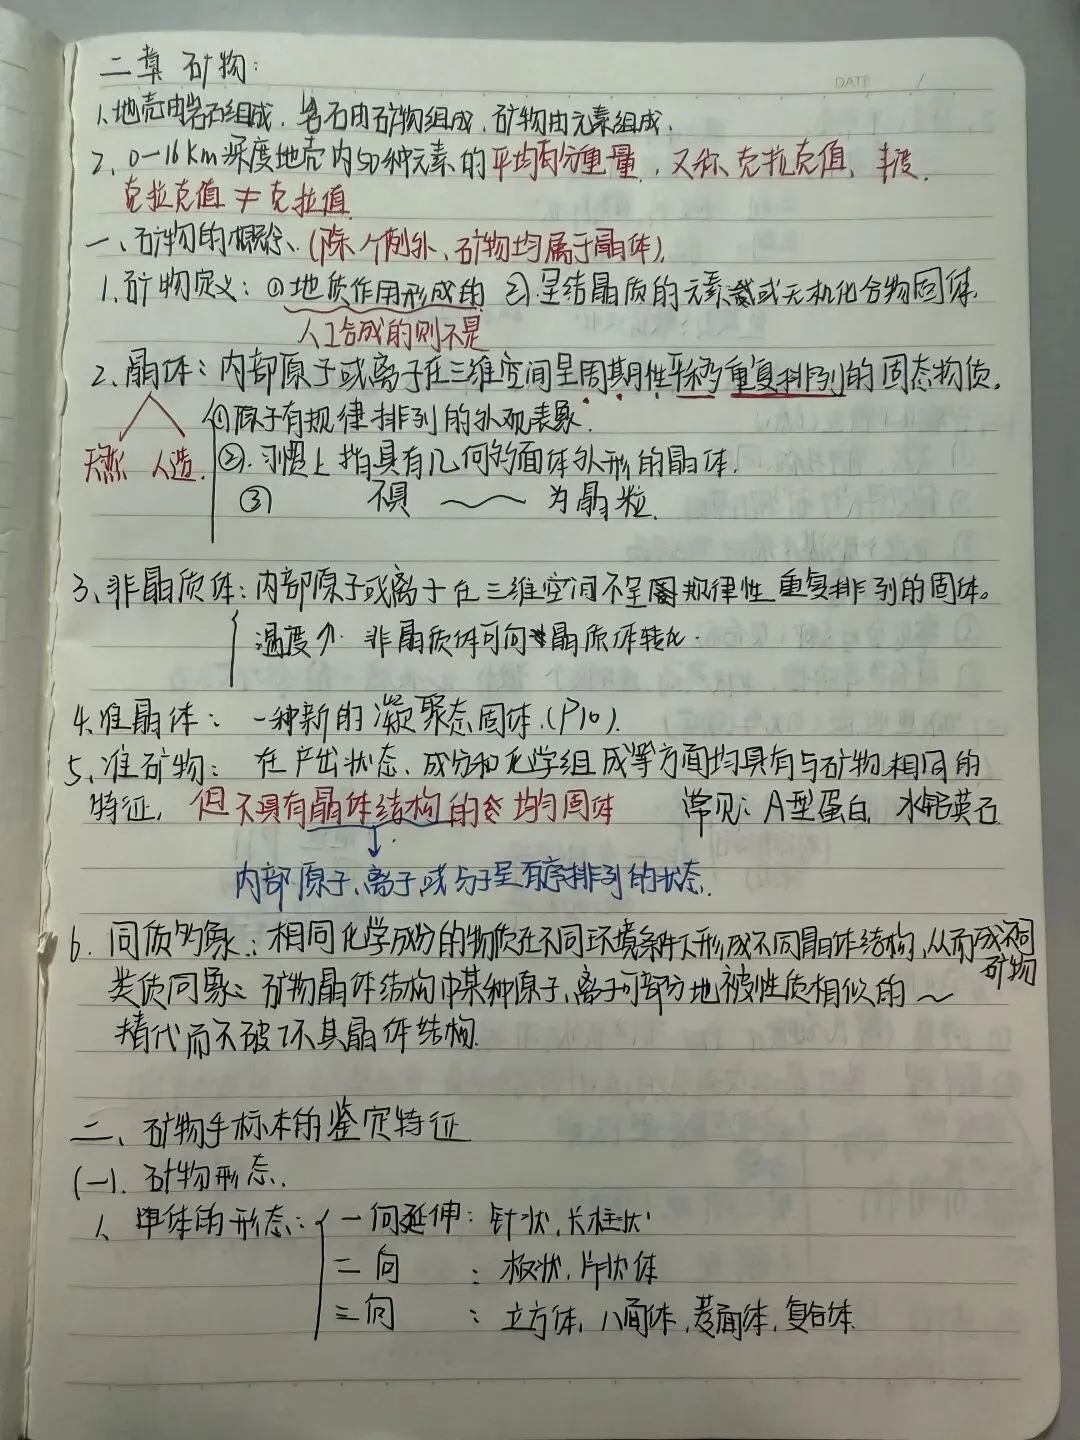 二章 矿物:
DATE /
1.地壳由岩石组成.岩石由矿物组成.矿物由元素组成.
2、0-16Km深度地壳内50种元素的平均百分重量.又称克拉克值、丰度.
克拉克值≠克拉值
一、矿物的概念、(除个例外、矿物均属于晶体).
1.矿物定义:①地质作用形成的 ②呈结晶质的元素或无机化合物固体.
人工合成的则不是
2、晶体:内部原子或离子在三维空间呈周期性平移重复排列的固态物质。
①原子有规律排列的外观表象.
天然 人造. ②.习惯上指具有几何多面体外形的晶体.
③ 不具 ~~ 为晶粒.
3、非晶质体:内部原子或离子在三维空间不呈规律性重复排列的固体。
温度↑.非晶质体可向晶质体转化.
4.准晶体: 一种新的凝聚态固体.(P10).
5、准矿物: 在产出状态、成分和化学组成等方面均具有与矿物相同的
特征, 但不具有晶体结构的 均匀固体 常见:A型蛋白 水铝英石
内部原子、离子或分子呈有序排列的状态.
6.同质多象:相同化学成分的物质在不同环境条件下形成不同晶体结构,从而成不同
矿物
类质同象:矿物晶体结构中某种原子、离子可部分地被性质相似的~
替代而不破坏其晶体结构.
二、矿物手标本的鉴定特征
(一).矿物形态.
1、单体的形态:一向延伸:针状,长柱状
二向 :板状,片状体
三向 :立方体,八面体,菱面体,复合体.